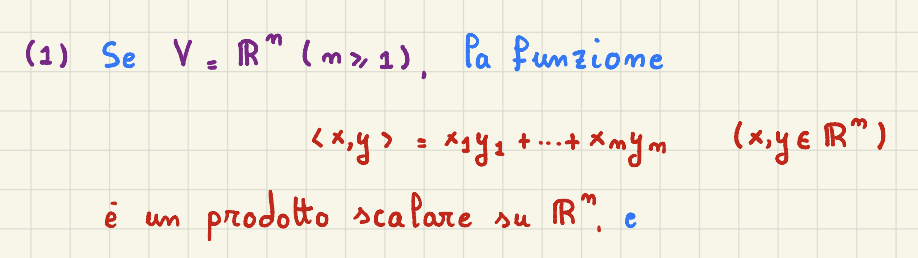 (1) Se V = ℝⁿ (n ≥ 1), la funzione
<x,y> = x₁y₁ + ... + xₙyₙ (x,y ∈ ℝⁿ)
è un prodotto scalare su ℝⁿ, e